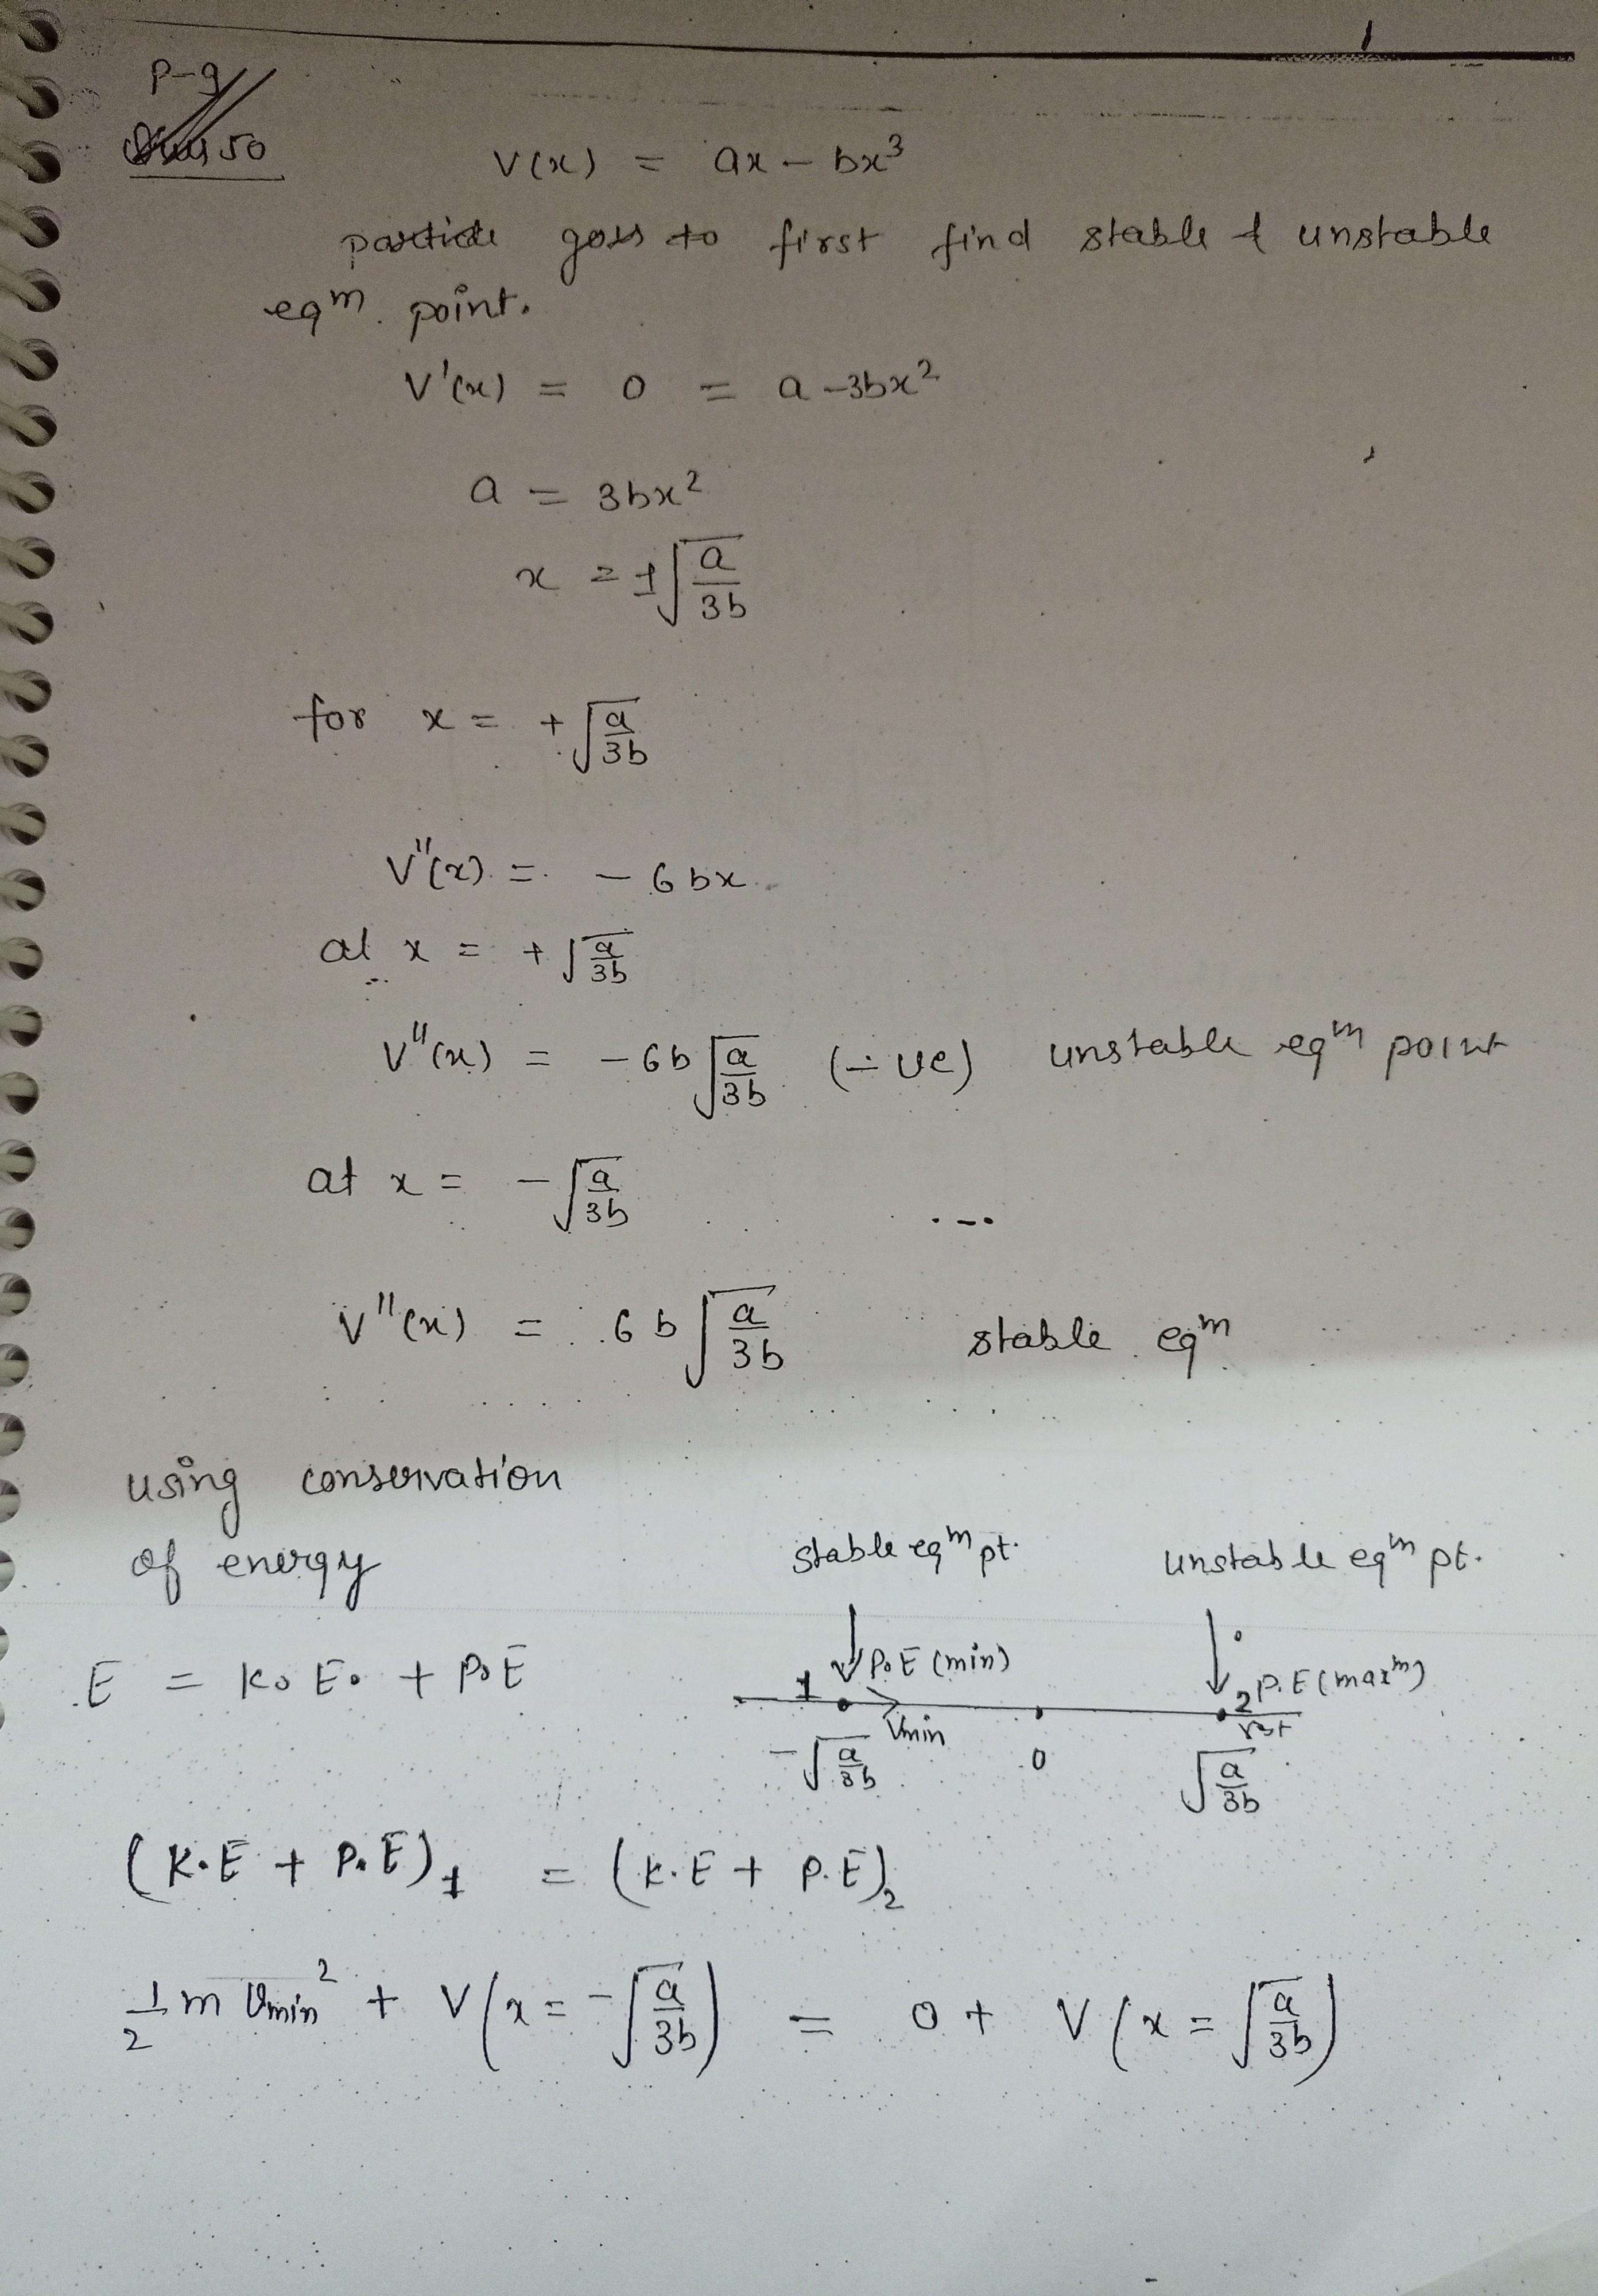 P-9
50
V(x) = ax - bx³
particle goes to first find stable & unstable
eqm. point.
V'(x) = 0 = a - 3bx²
a = 3bx²
x = ±√(a/3b)
for x = +√(a/3b)
V''(x) = - 6bx
at x = +√(a/3b)
V''(x) = -6b√(a/3b) (-ve) unstable eqm point
at x = -√(a/3b)
V''(x) = 6b√(a/3b) stable eqm
using conservation
of energy
stable eqm pt. unstable eqm pt.
E = K.E. + P.E
1 P.E (min) 2 P.E (maxm)
Vmin rest
-√(a/3b) 0 √(a/3b)
(K.E + P.E)₁ = (K.E + P.E)₂
1/2 m Vmin² + V(x = -√(a/3b)) = 0 + V(x = √(a/3b))